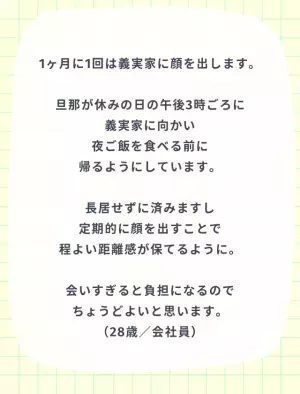 1ヶ月に1回は義実家に顔を出します。
旦那が休みの日の午後3時ごろに
義実家に向かい
夜ご飯を食べる前に
帰るようにしています。
長居せずに済みますし
定期的に顔を出すことで
程よい距離感が保てるように。
会いすぎると負担になるので
ちょうどよいと思います。
（28歳／会社員）